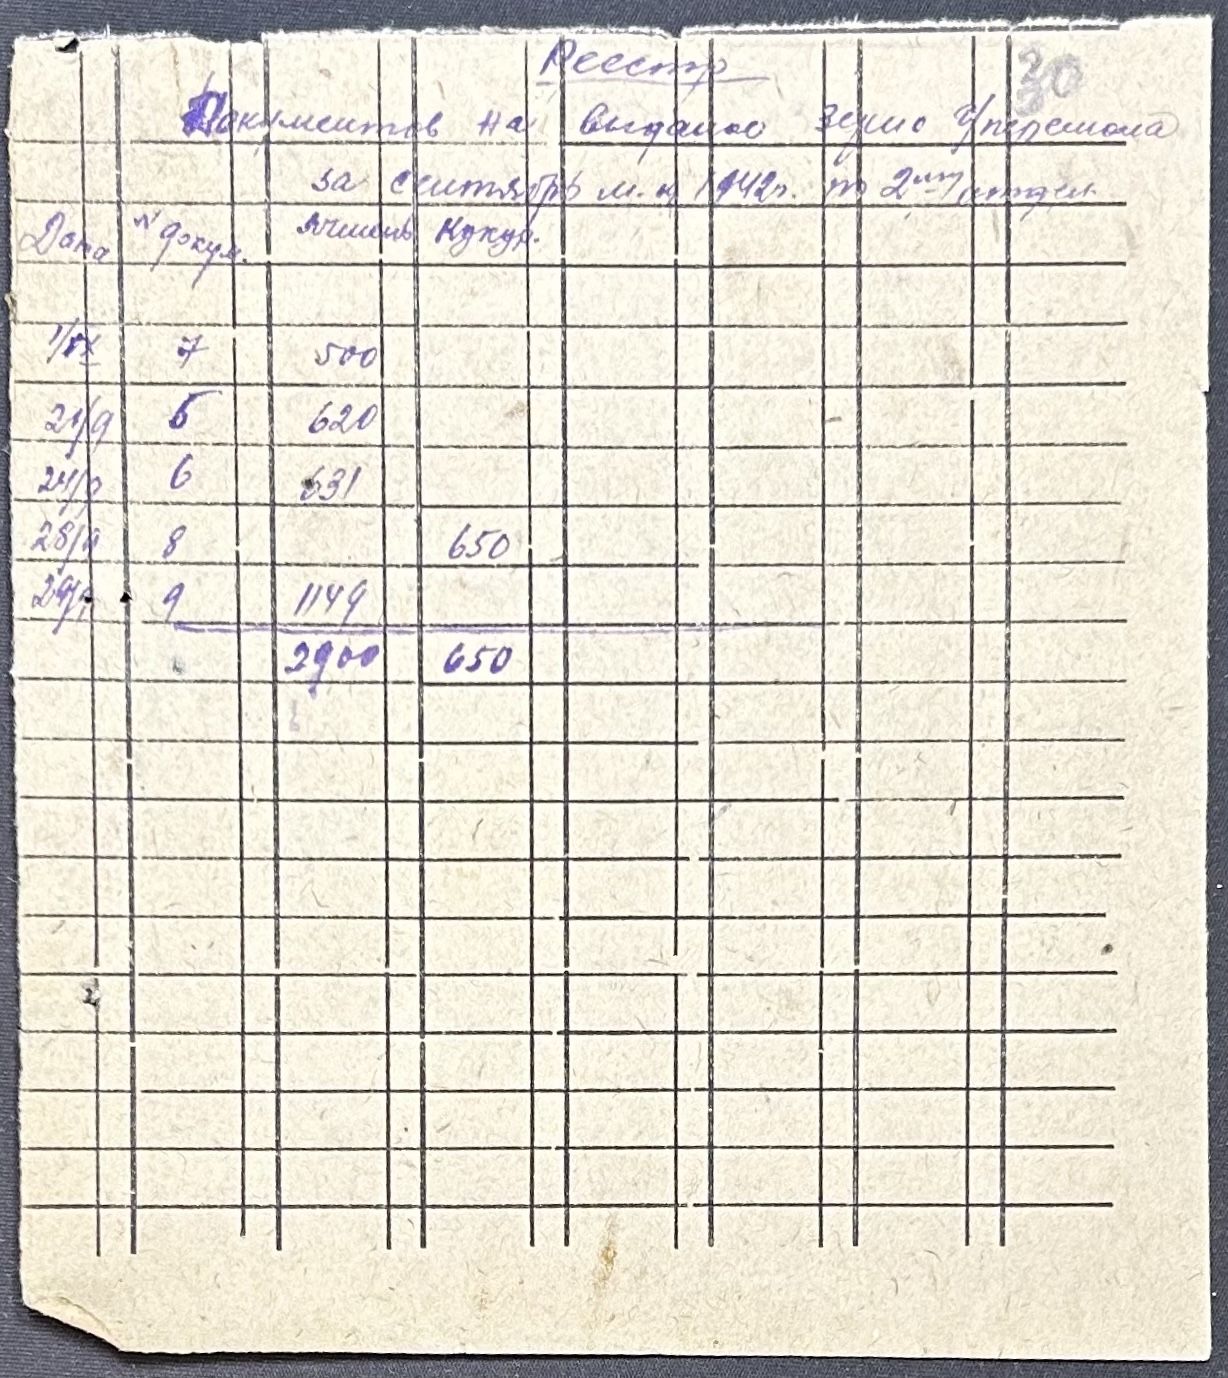 30
Реестр
Документов на выданое зерно д/перемола
за сентябрь м-ц 1942г. по 2му отдел.
Дата № докум. Ячмень Кукур.
1/IX 7 500
21/9 5 620
24/9 6 631
28/9 8 650
29/9 9 1149
2900 650